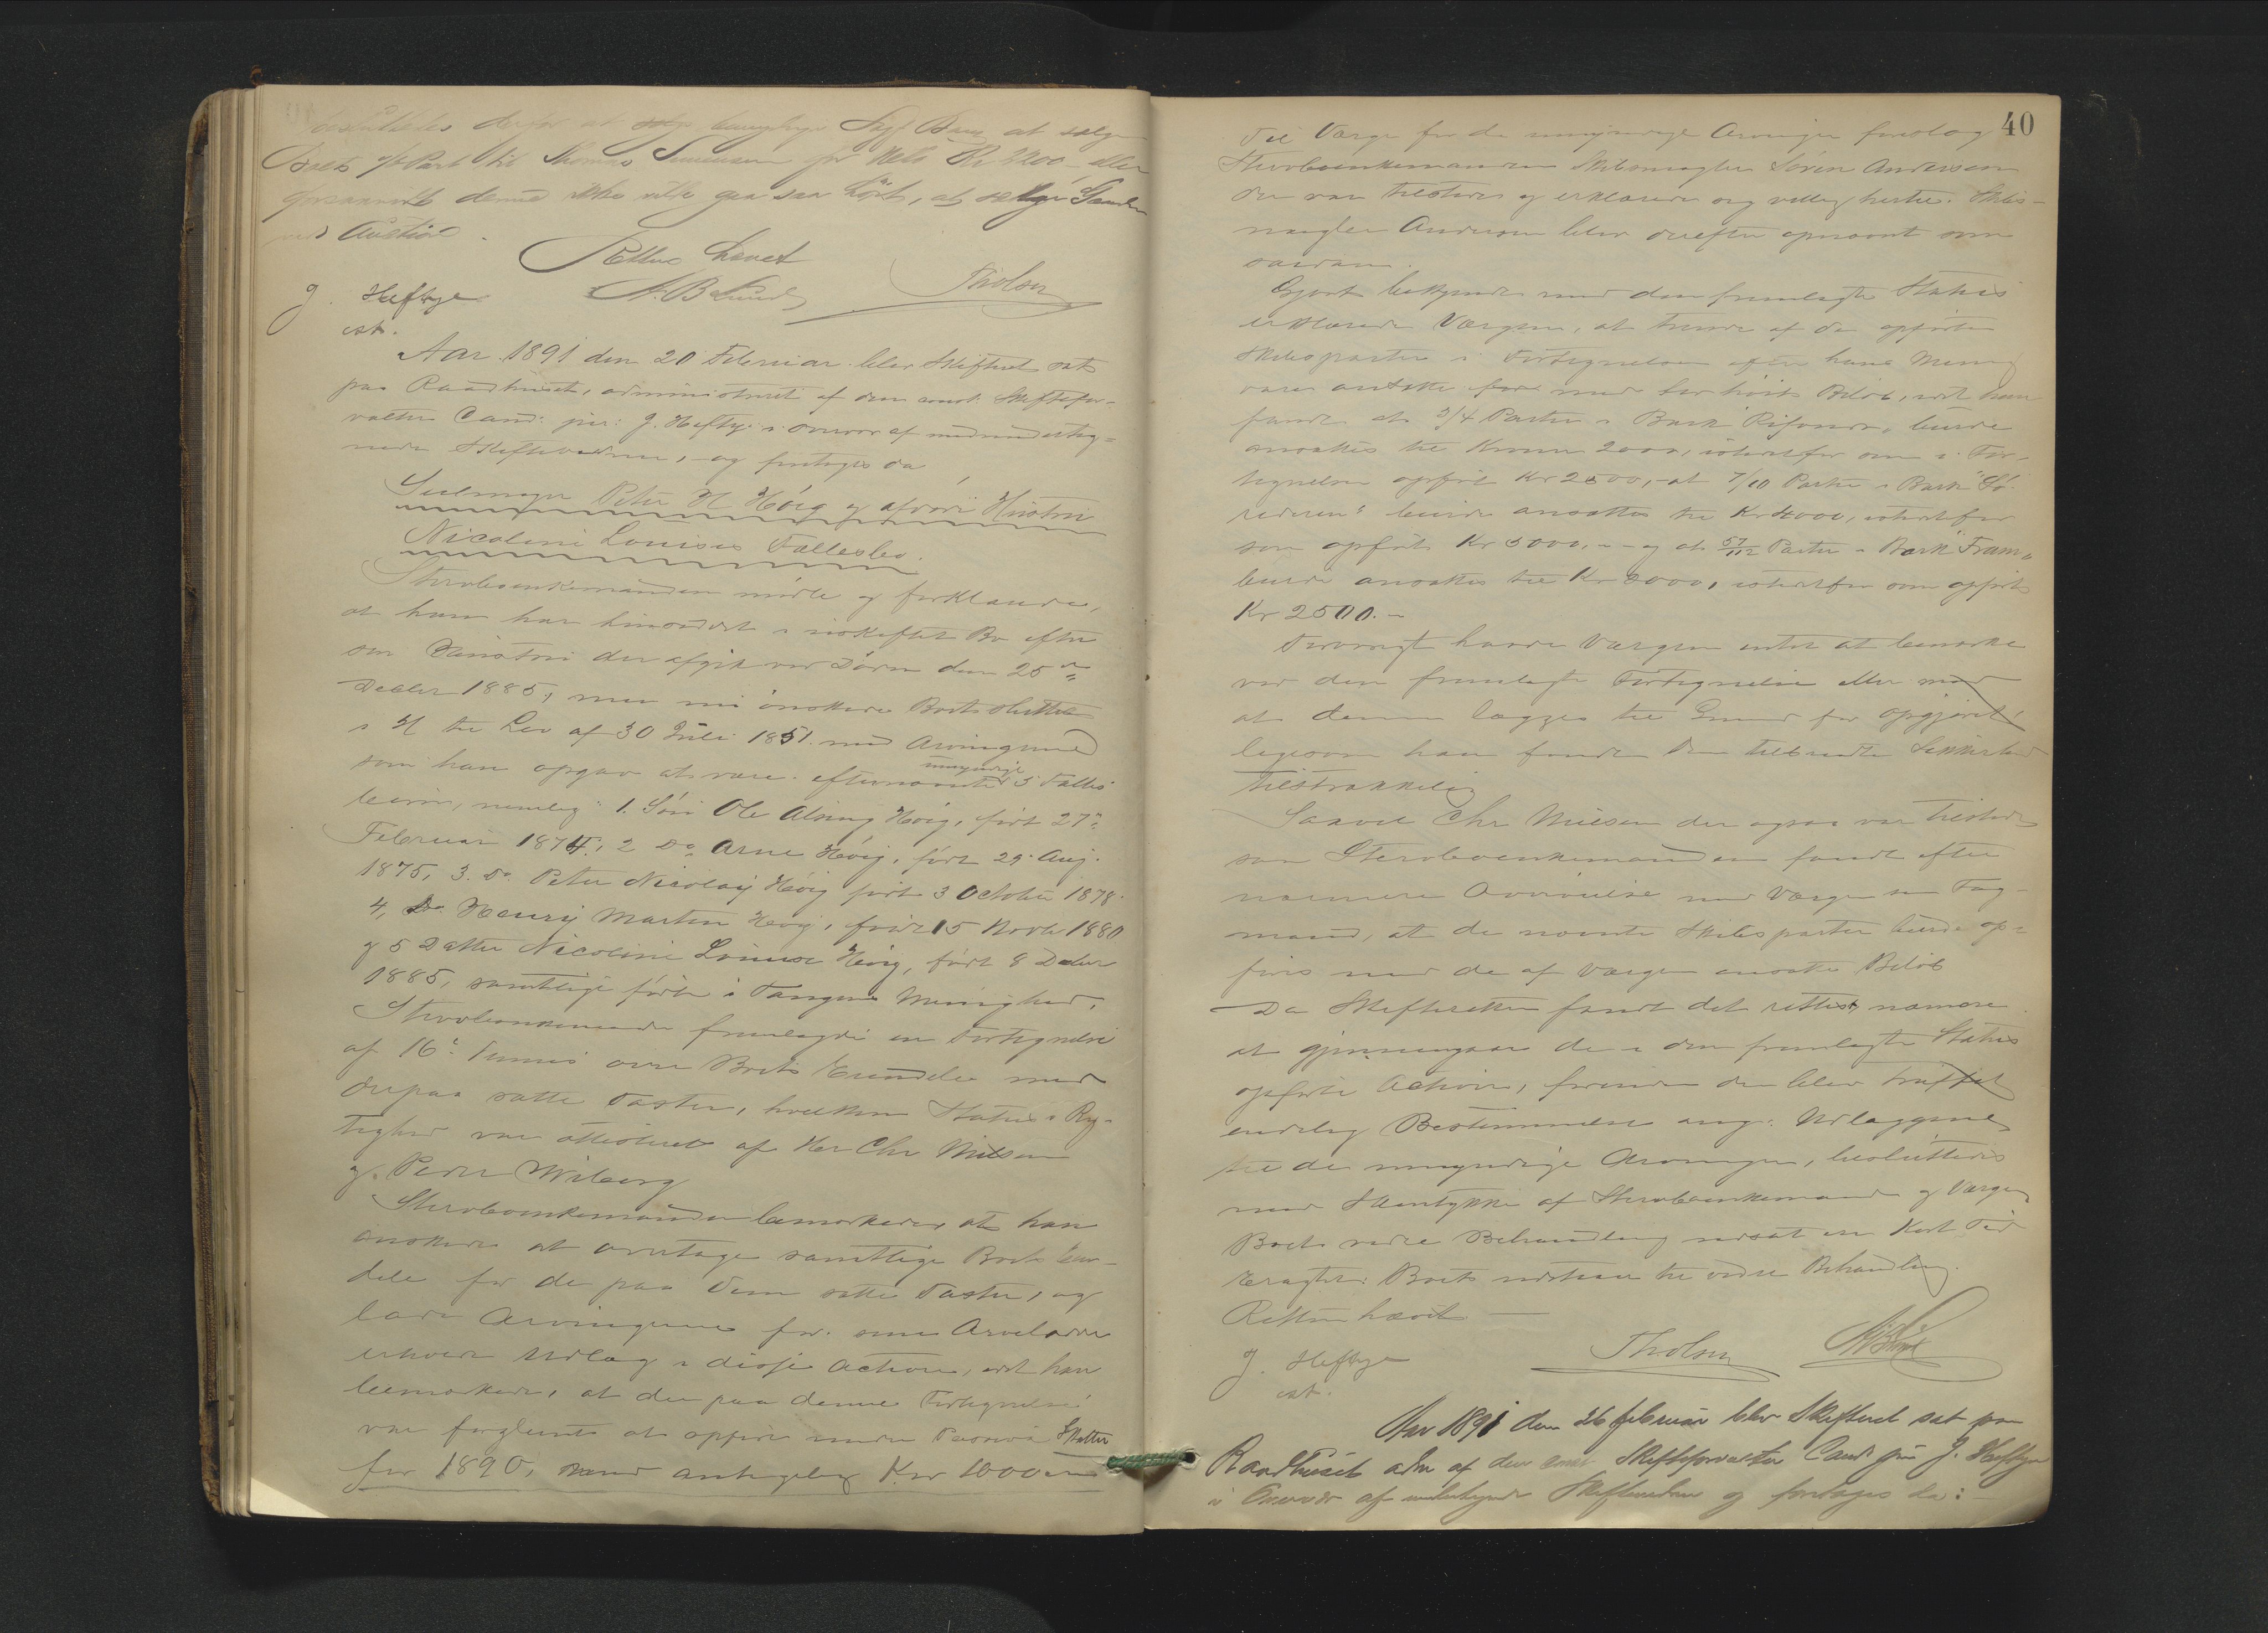 besluttedes derfor at bemyndige Sagf Bang at selge
Boets Part til Thomas Simensen for Netto Kr 2200, eller
forsaavidt denne ikke vilde gaa saa höit, at selge Samler
ved Auction.
Retten hævet
J. Heftye Tholsen
cst.
Aar 1891 den 20 Februar blev Skifteret sat
paa Raadhuset, administreret af den const. Skiftefor-
valter Cand: jur: J. Heftye i Overvær af medunderteg-
nede Skiftevidner, og foretoges da
Seilmager Peter H Höeg og afdöde Hustru
Nicoline Louises Fællesbo.
Stervboenkemanden mödte og forklarede,
at han har hensiddet i uskiftet Bo efter
sin Hustru der afgik ved Döden den 25de
Decbr 1885, men nu önskede Boet sluttet
i H til Lov af 30 Juli 1851 med Arvingerne
som han opgav at være efternævnte umyndige 5 Fælles-
börn, nemlig: 1. Sön Ole Alsing Höeg, född 27de
Februar 1874, 2 Do Arne Höeg, född 29 Aug.
1875, 3. Do Peter Nicolay Höeg född 3 October 1878.
4, Do Henry Martin Höeg, född 15 Novbr 1880
og 5 Datter Nicoline Louise Höeg, född 8 Decbr
1885, samtlige födte i Tangens Menighed.
Stervboenkemanden fremlagde en Fortegnelse
af 16de dennes over Boets Eiendele med
derpaa satte Taxter, hvilken Status's Rig-
tighed var attesteret af Her Chr Nielsen
og Peder Wiberg
Stervboenkemanden bemærkede, at han
önskede at overtage samtlige Boets Eien-
dele for de paa dem satte Taxter, og
lade Arvingerne for sine Arvelodder
erholde Udlæg i disse Activer, idet han
bemærkede, at der paa denne Fortegnelse
var forglemt at opföre under Passiva Skatter
for 1890, med antagelig Kr 1000
40
Til Værge for de umyndige Arvinger foreslog
Stervboenkemanden Skibsmægler Sören Andersen
der var tilstede og erklærede sig villig hertil. Skibs-
mægler Andersen blev derefter opnævnt som
saadan.
Gjort bekjendt med den fremlagte Status
erklærede Værgen, at trende af de opförte
Skibsparter i Fortegnelsen efter hans Mening
vare ansatte med for höit Belöb, idet han
fandt at 3/4 Parter i Bark Rifondo, burde
ansættes til Kroner 2000, istedetfor som i For-
tegnelsen opfört Kr 2500, at 7/10 Parter i Bark "Sö-
rideren" burde ansættes til Kr 4000, istedetfor
som opfört Kr 5000.- og at 57/112 Parter i Bark "Fram"
burde ansættes til Kr 2000, istedetfor som opfört
Kr 2500.-
Forövrigt havde Værgen intet at bemærke
ved den fremlagte Fortegnelse eller mod
at denne lægges til Grund for Opgjöret,
ligesom han fandt den tilbudte Sikkerhed
tilstrækkelig
Saavel Chr Nielsen der ogsaa var tilstede
som Stervboenkemanden fandt efter
nærmere Overveielse med Værgen som Fag-
mand, at de nævnte Skibsparter burde op-
föres med de af Værgen ansatte Belöb
Da Skifteretten fandt det rettest, nærmere
at gjennemgaa de i den fremlagte Status
opförte Activer, forinden der blev truffet
endelig Bestemmelse ang. Udlæggene
til de umyndige Arvinger, besluttedes
med Samtykke af Stervboenkemanden og Værgen
Boets videre Behandling udsat en kort Tid
Eragtet: Boets udstaar til videre Behandling.
Retten hævet
J. Heftye Tholsen
cst.
Aar 1891 den 26 februar blev Skifteret sat paa
Raadhuset adm af den const Skifteforvalter Cand jur J. Heftye
i Overvær af undertegnede Skiftevidner og foretoges da: